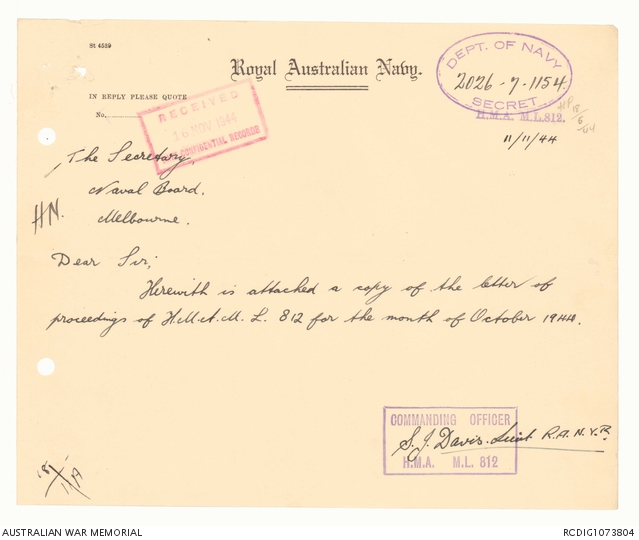 St 4539
Royal Australian Navy.
DEPT. OF NAVY
2026-7-1154
SECRET
H.M.A. M.L.812.
IN REPLY PLEASE QUOTE
No.
RECEIVED
16 NOV 1944
CONFIDENTIAL RECORDS
11/11/44
The Secretary,
Naval Board.
HN.
Melbourne.
Dear Sir;
Herewith is attached a copy of the letter of
proceedings of H.M.A.M.L. 812 for the month of October 1944.
COMMANDING OFFICER
S.J. Davis. Lieut R.A.N.V.R.
H.M.A. M.L. 812
AUSTRALIAN WAR MEMORIAL
RCDIG1073804